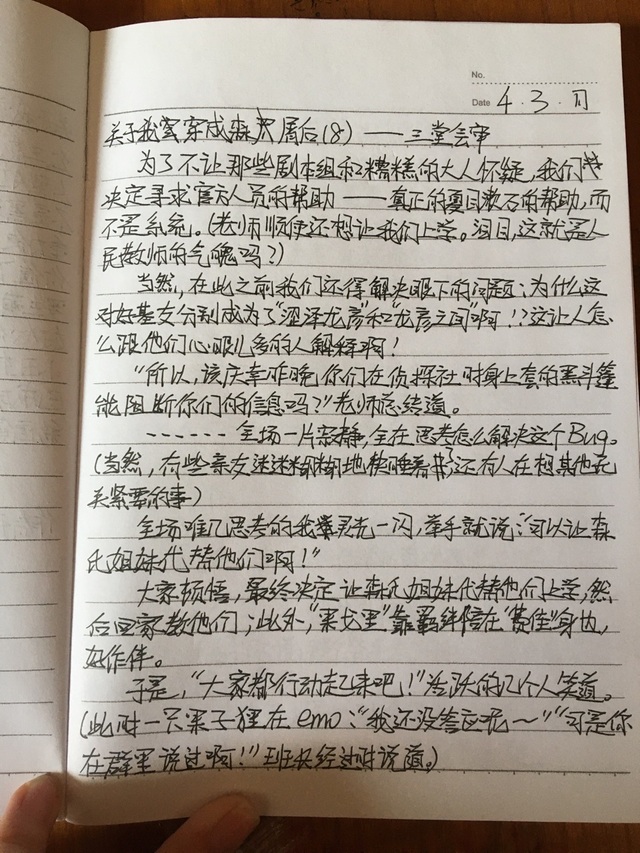 No.
Date 4.3.日
关于我穿成森林屠后(8)——三堂会审
为了不让那些剧本组和糟糕的大人怀疑,我们
决定寻求官方人员的帮助——真正的夏目漱石的帮助,而
不是系统。(老师顺便还想让我们上学。泪目,这就是人
民教师的气魄吗?)
当然,在此之前我们还得解决眼下的问题:为什么这
对好基友分别成为了“涩泽龙彦”和“龙彦之间”啊!?这让人怎
么跟他们心眼儿多的人解释啊!
“所以,该庆幸昨晚你们在侦探社时身上套的黑斗篷
能阻断你们的信息吗?”老师总结道。
……全场一片寂静,全在思考怎么解决这个Bug。
(当然,有些亲友迷迷糊糊地快睡着了,还有人在想其他无
关紧要的事)
全场唯几思考的我灵光一闪,举手就说:“可以让森
氏姐妹代替他们啊!”
大家顿悟,最终决定让森氏姐妹代替他们上学,然
后回家教他们;此外,“果戈里”靠羁绊陪在“费佳”身边,
好作伴。
于是,“大家都行动起来吧!”活跃的几个人笑道。
(此时一只果子狸在emo:“我还没答应呢~”“可是你
在群里说过啊!”班长经过时说道。)